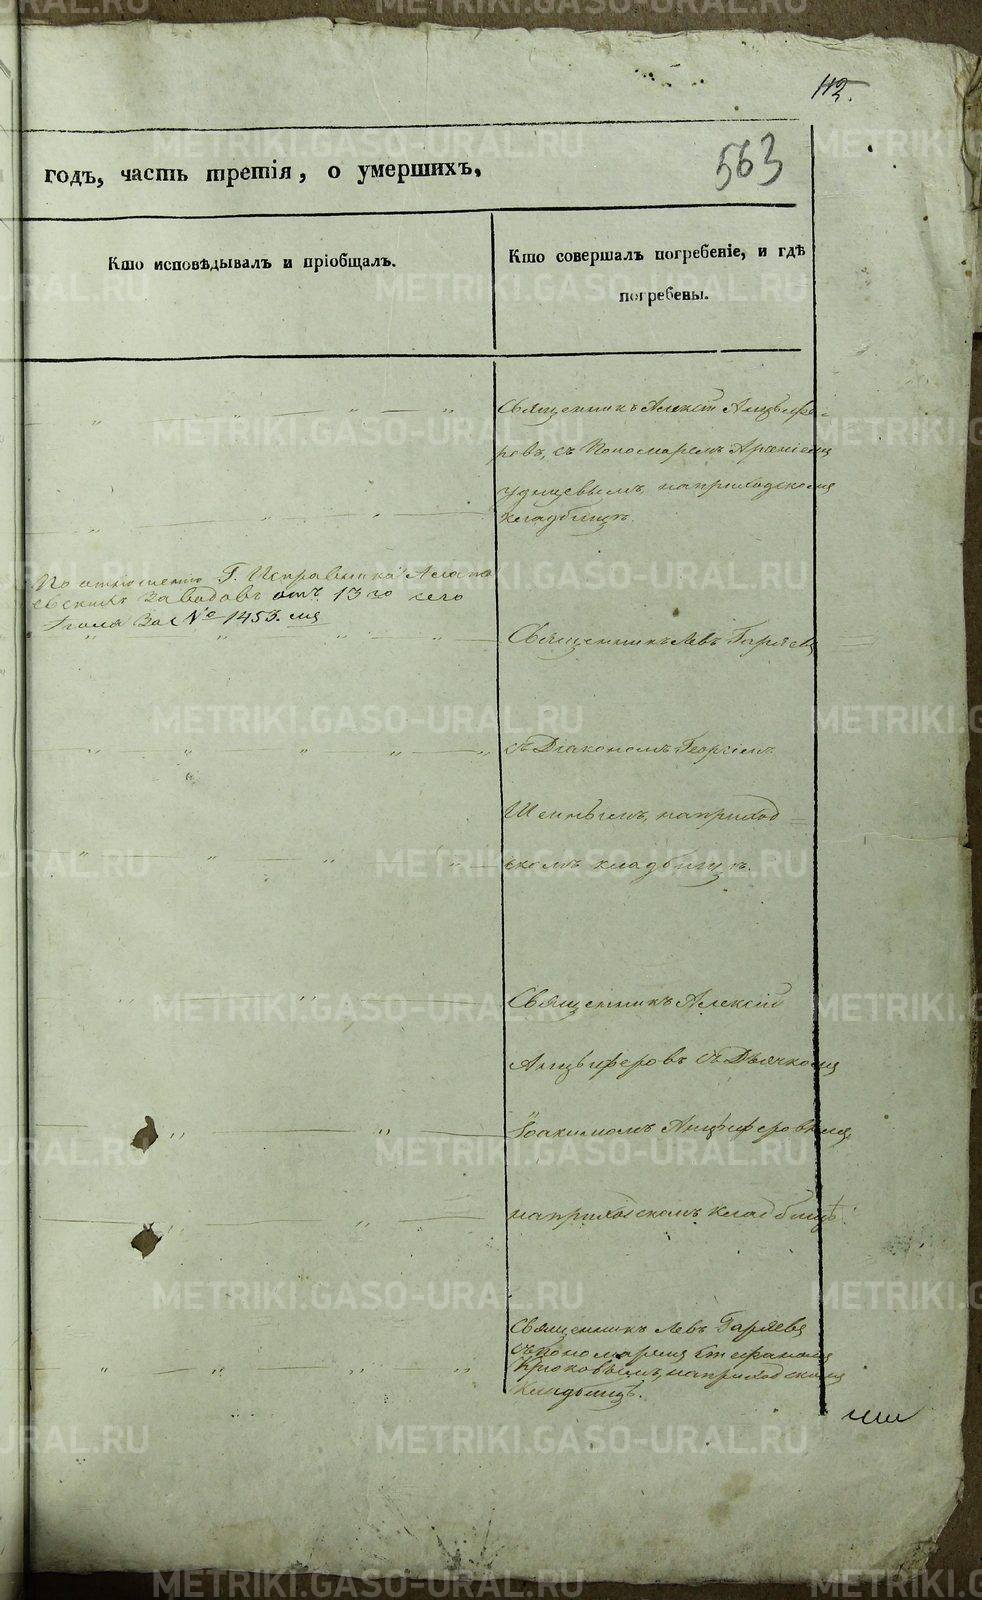 112.
годъ, часть третія, о умершихъ,
563
Кто исповѣдывалъ и пріобщалъ.
Кто совершалъ погребеніе, и гдѣ
погребены.
Священникъ Алексій Анцыфе-
ровъ, съ Пономаремъ Арсеніемъ
Удинцевымъ, наприходскомъ
кладбищѣ.
По отношенію Г. Исправника Алапа
евскихъ Заводовъ отъ 13го сего
Іюля За № 1453.мъ
Священникъ Левъ Гаряевъ
съ Діакономъ Георгіемъ
наприход=
скомъ кладбищѣ.
Священникъ Алексій
Анцыферовъ съ Дьячкомъ
Іоакимомъ Анцыферовымъ
наприходскомъ кладбищѣ.
Священникъ Левъ Гаряевъ
съ Пономаремъ Стефаномъ
Крюковымъ, наприходскомъ
кладбищѣ.
METRIKI.GASO-URAL.RU